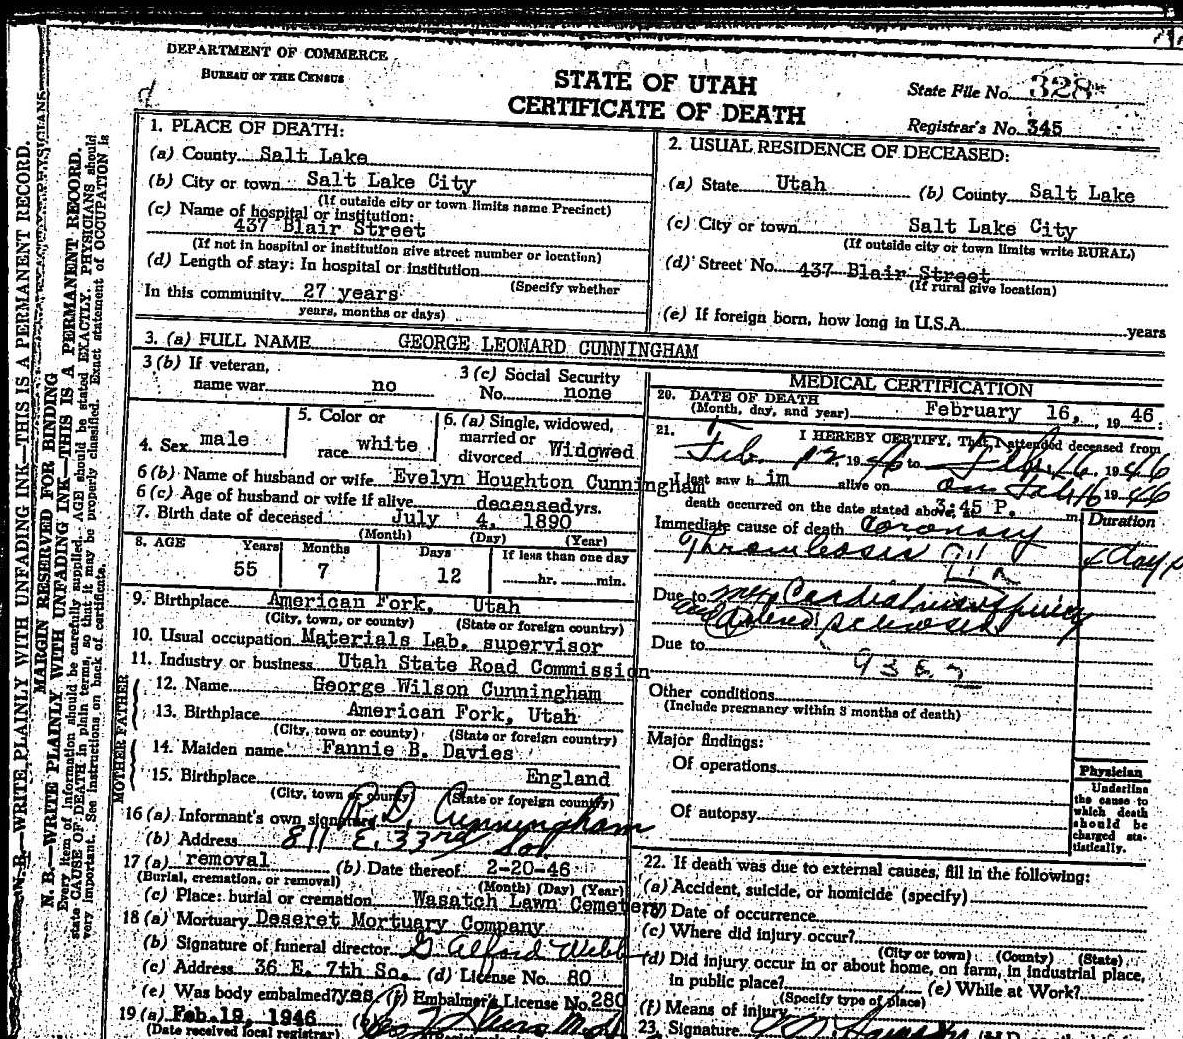 DEPARTMENT OF COMMERCE
BUREAU OF THE CENSUS
STATE OF UTAH
CERTIFICATE OF DEATH
State File No. 328
Registrar's No. 345
N. B.—WRITE PLAINLY WITH UNFADING INK—THIS IS A PERMANENT RECORD.
MARGIN RESERVED FOR BINDING
N. B.—WRITE PLAINLY WITH UNFADING INK—THIS IS A PERMANENT RECORD.
Every item of information should be carefully supplied. AGE should be stated EXACTLY. PHYSICIANS should
state CAUSE OF DEATH in plain terms, so that it may be properly classified. Exact statement of OCCUPATION is
very important. See instructions on back of certificate.
1. PLACE OF DEATH:
(a) County Salt Lake
(b) City or town Salt Lake City
(If outside city or town limits name Precinct)
(c) Name of hospital or institution:
437 Blair Street
(If not in hospital or institution give street number or location)
(d) Length of stay: In hospital or institution
(Specify whether
In this community 27 years
years, months or days)
2. USUAL RESIDENCE OF DECEASED:
(a) State Utah (b) County Salt Lake
(c) City or town Salt Lake City
(If outside city or town limits write RURAL)
(d) Street No. 437 Blair Street
(If rural give location)
(e) If foreign born, how long in U.S.A. years
3. (a) FULL NAME GEORGE LEONARD CUNNINGHAM
3 (b) If veteran,
name war no
3 (c) Social Security
No. none
4. Sex male
5. Color or
race white
6. (a) Single, widowed,
married or
divorced Widowed
6 (b) Name of husband or wife Evelyn Houghton Cunningham
6 (c) Age of husband or wife if alive deceased yrs.
7. Birth date of deceased July 4, 1890
(Month) (Day) (Year)
8. AGE Years Months Days If less than one day
55 7 12 hr. min.
9. Birthplace American Fork, Utah
(City, town, or county) (State or foreign country)
10. Usual occupation Materials Lab. supervisor
11. Industry or business Utah State Road Commission
FATHER
12. Name George Wilson Cunningham
13. Birthplace American Fork, Utah
(City, town or county) (State or foreign country)
MOTHER
14. Maiden name Fannie B. Davies
15. Birthplace England
(City, town or county) (State or foreign country)
16 (a) Informant's own signature R. D. Cunningham
(b) Address 811 E. 33rd So.
17 (a) removal (b) Date thereof 2-20-46
(Burial, cremation, or removal) (Month) (Day) (Year)
(c) Place: burial or cremation Wasatch Lawn Cemetery
18 (a) Mortuary Deseret Mortuary Company
(b) Signature of funeral director G. Alford Webb
(c) Address 36 E. 7th So. (d) License No. 80
(e) Was body embalmed? yes (f) Embalmer's License No. 280
19 (a) Feb. 19, 1946 (b)
(Date received local registrar)
MEDICAL CERTIFICATION
20. DATE OF DEATH
(Month, day, and year) February 16, 19 46.
21. I HEREBY CERTIFY, That I attended deceased from
Feb. 12, 19 46 to Feb. 16, 19 46
I last saw h im alive on on Feb 16 19 46
death occurred on the date stated above, at 3:45 P. m. Duration
Immediate cause of death Coronary
Thrombosis 4 days
Due to
Due to
Other conditions
(Include pregnancy within 3 months of death)
Major findings:
Of operations
Of autopsy
Physician
Underline
the cause to
which death
should be
charged sta-
tistically.
22. If death was due to external causes, fill in the following:
(a) Accident, suicide, or homicide (specify)
(b) Date of occurrence
(c) Where did injury occur?
(City or town) (County) (State)
(d) Did injury occur in or about home, on farm, in industrial place,
in public place? (e) While at Work?
(Specify type of place)
(f) Means of injury
23. Signature